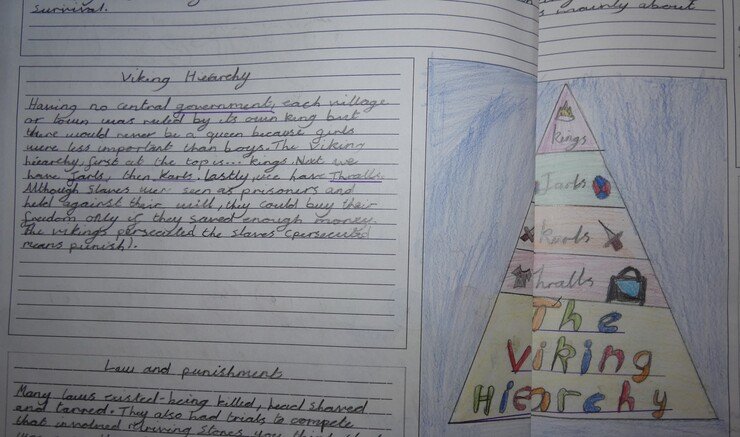 survival.
mainly about
Viking Hiearchy
Having no central government, each village
or town was ruled by its own king but
there would never be a queen because girls
were less important than boys. The Viking
hiearchy, first at the top is... kings. Next we
have Jarls, then Karls. Lastly, we have Thralls.
Although slaves wer seen as prisoners and
held against their will, they could buy their
freedom only if they saved enough money.
The vikings persecuted the slaves (persecuted
means punish).
Kings
Jarls
Karls
Thralls
The
Viking
Hiearchy
Law and punishments
Many laws existed - being killed, head shaved
and tarred. They also had trials to compete
that involved